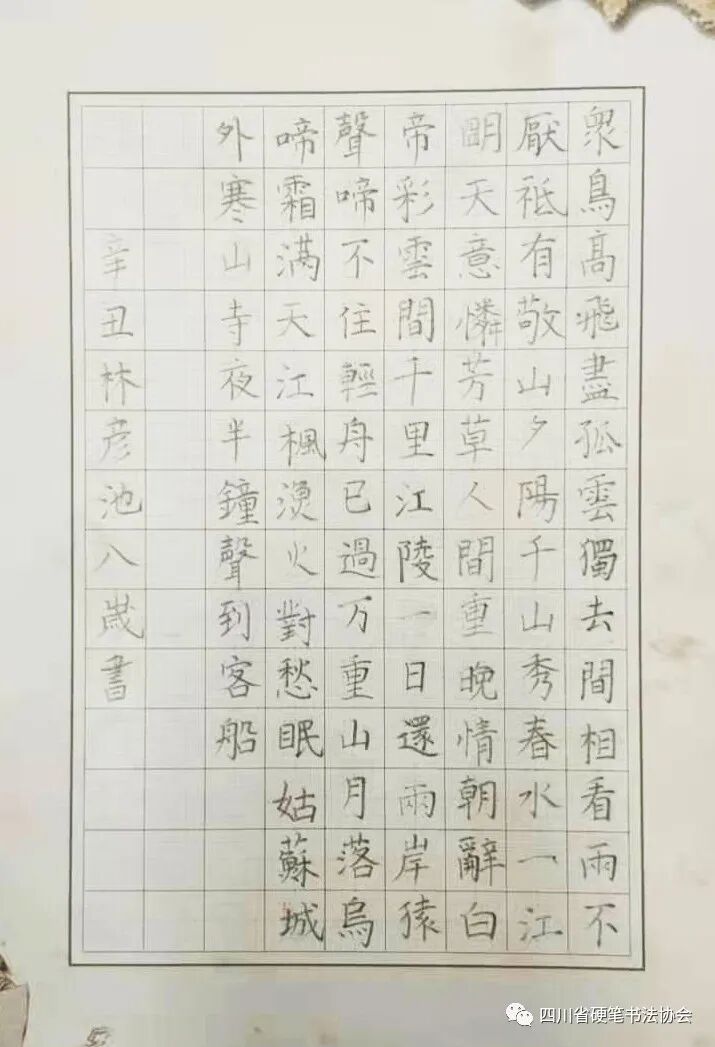 眾鳥高飛盡孤雲獨去間相看兩不
厭祗有敬山夕陽千山秀春水一江
明天意憐芳草人間重晚情朝辭白
帝彩雲間千里江陵一日還兩岸猿
聲啼不住輕舟已過万重山月落烏
啼霜满天江楓渔火對愁眠姑蘇城
外寒山寺夜半鐘聲到客船
辛丑林彦池八歲書
四川省硬笔书法协会